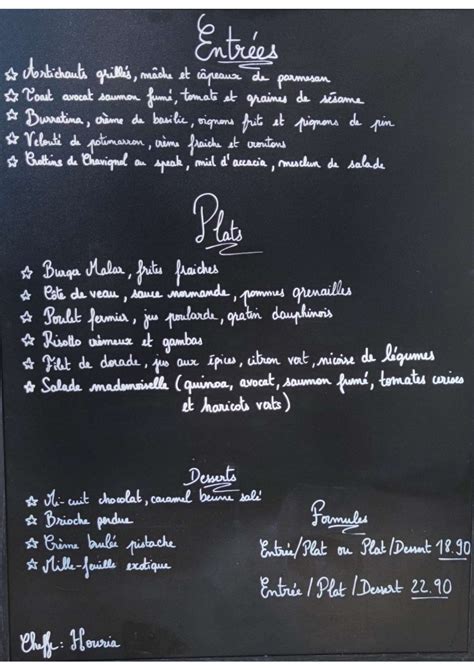 Entrées
☆ Artichauts grillés, mâche et câpeaux de parmesan
☆ Toast avocat saumon fumé, tomate et graines de sésame
☆ Burratina, crème de basilic, oignons frits et pignons de pin
☆ Velouté de potimarron, crème fraiche et croutons
☆ Crottins de Chavignol au speak, miel d'accacia, mesclun de salade
Plats
☆ Burga Malax, frites fraiches
☆ Côte de veau, sauce normande, pommes grenailles
☆ Poulet fermier, jus poularde, gratin dauphinois
☆ Risotto crémeux et gambas
☆ Filet de dorade, jus aux épices, citron vert, niçoise de légumes
☆ Salade mademoiselle (quinoa, avocat, saumon fumé, tomates cerises
et haricots verts)
Desserts
☆ Mi-cuit chocolat, caramel beurre salé
☆ Brioche perdue
☆ Crème brulée pistache
☆ Mille-feuille exotique
Formules
Entrée/Plat ou Plat/Dessert 18.90
Entrée/Plat/Dessert 22.90
Cheffe: Houria